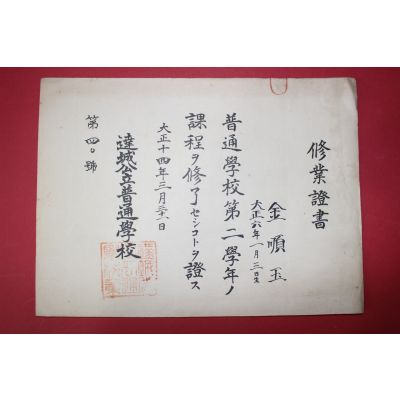 修業證書
金順玉
大正六年一月二日生
普通學校第二學年ノ
課程ヲ修了セシコトヲ證ス
大正十四年三月三十六日
達城公立普通學校
第四〇號